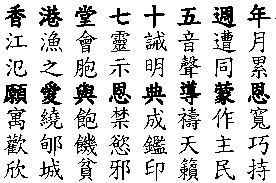 香江氾願寓歡欣
港漁之愛繞郇城
堂會胞與飽饑貧
七靈示恩禁慾邪
十誡明典成鑑印
五音聲導禱天籟
週遭同蒙作主民
年月累恩寬巧持